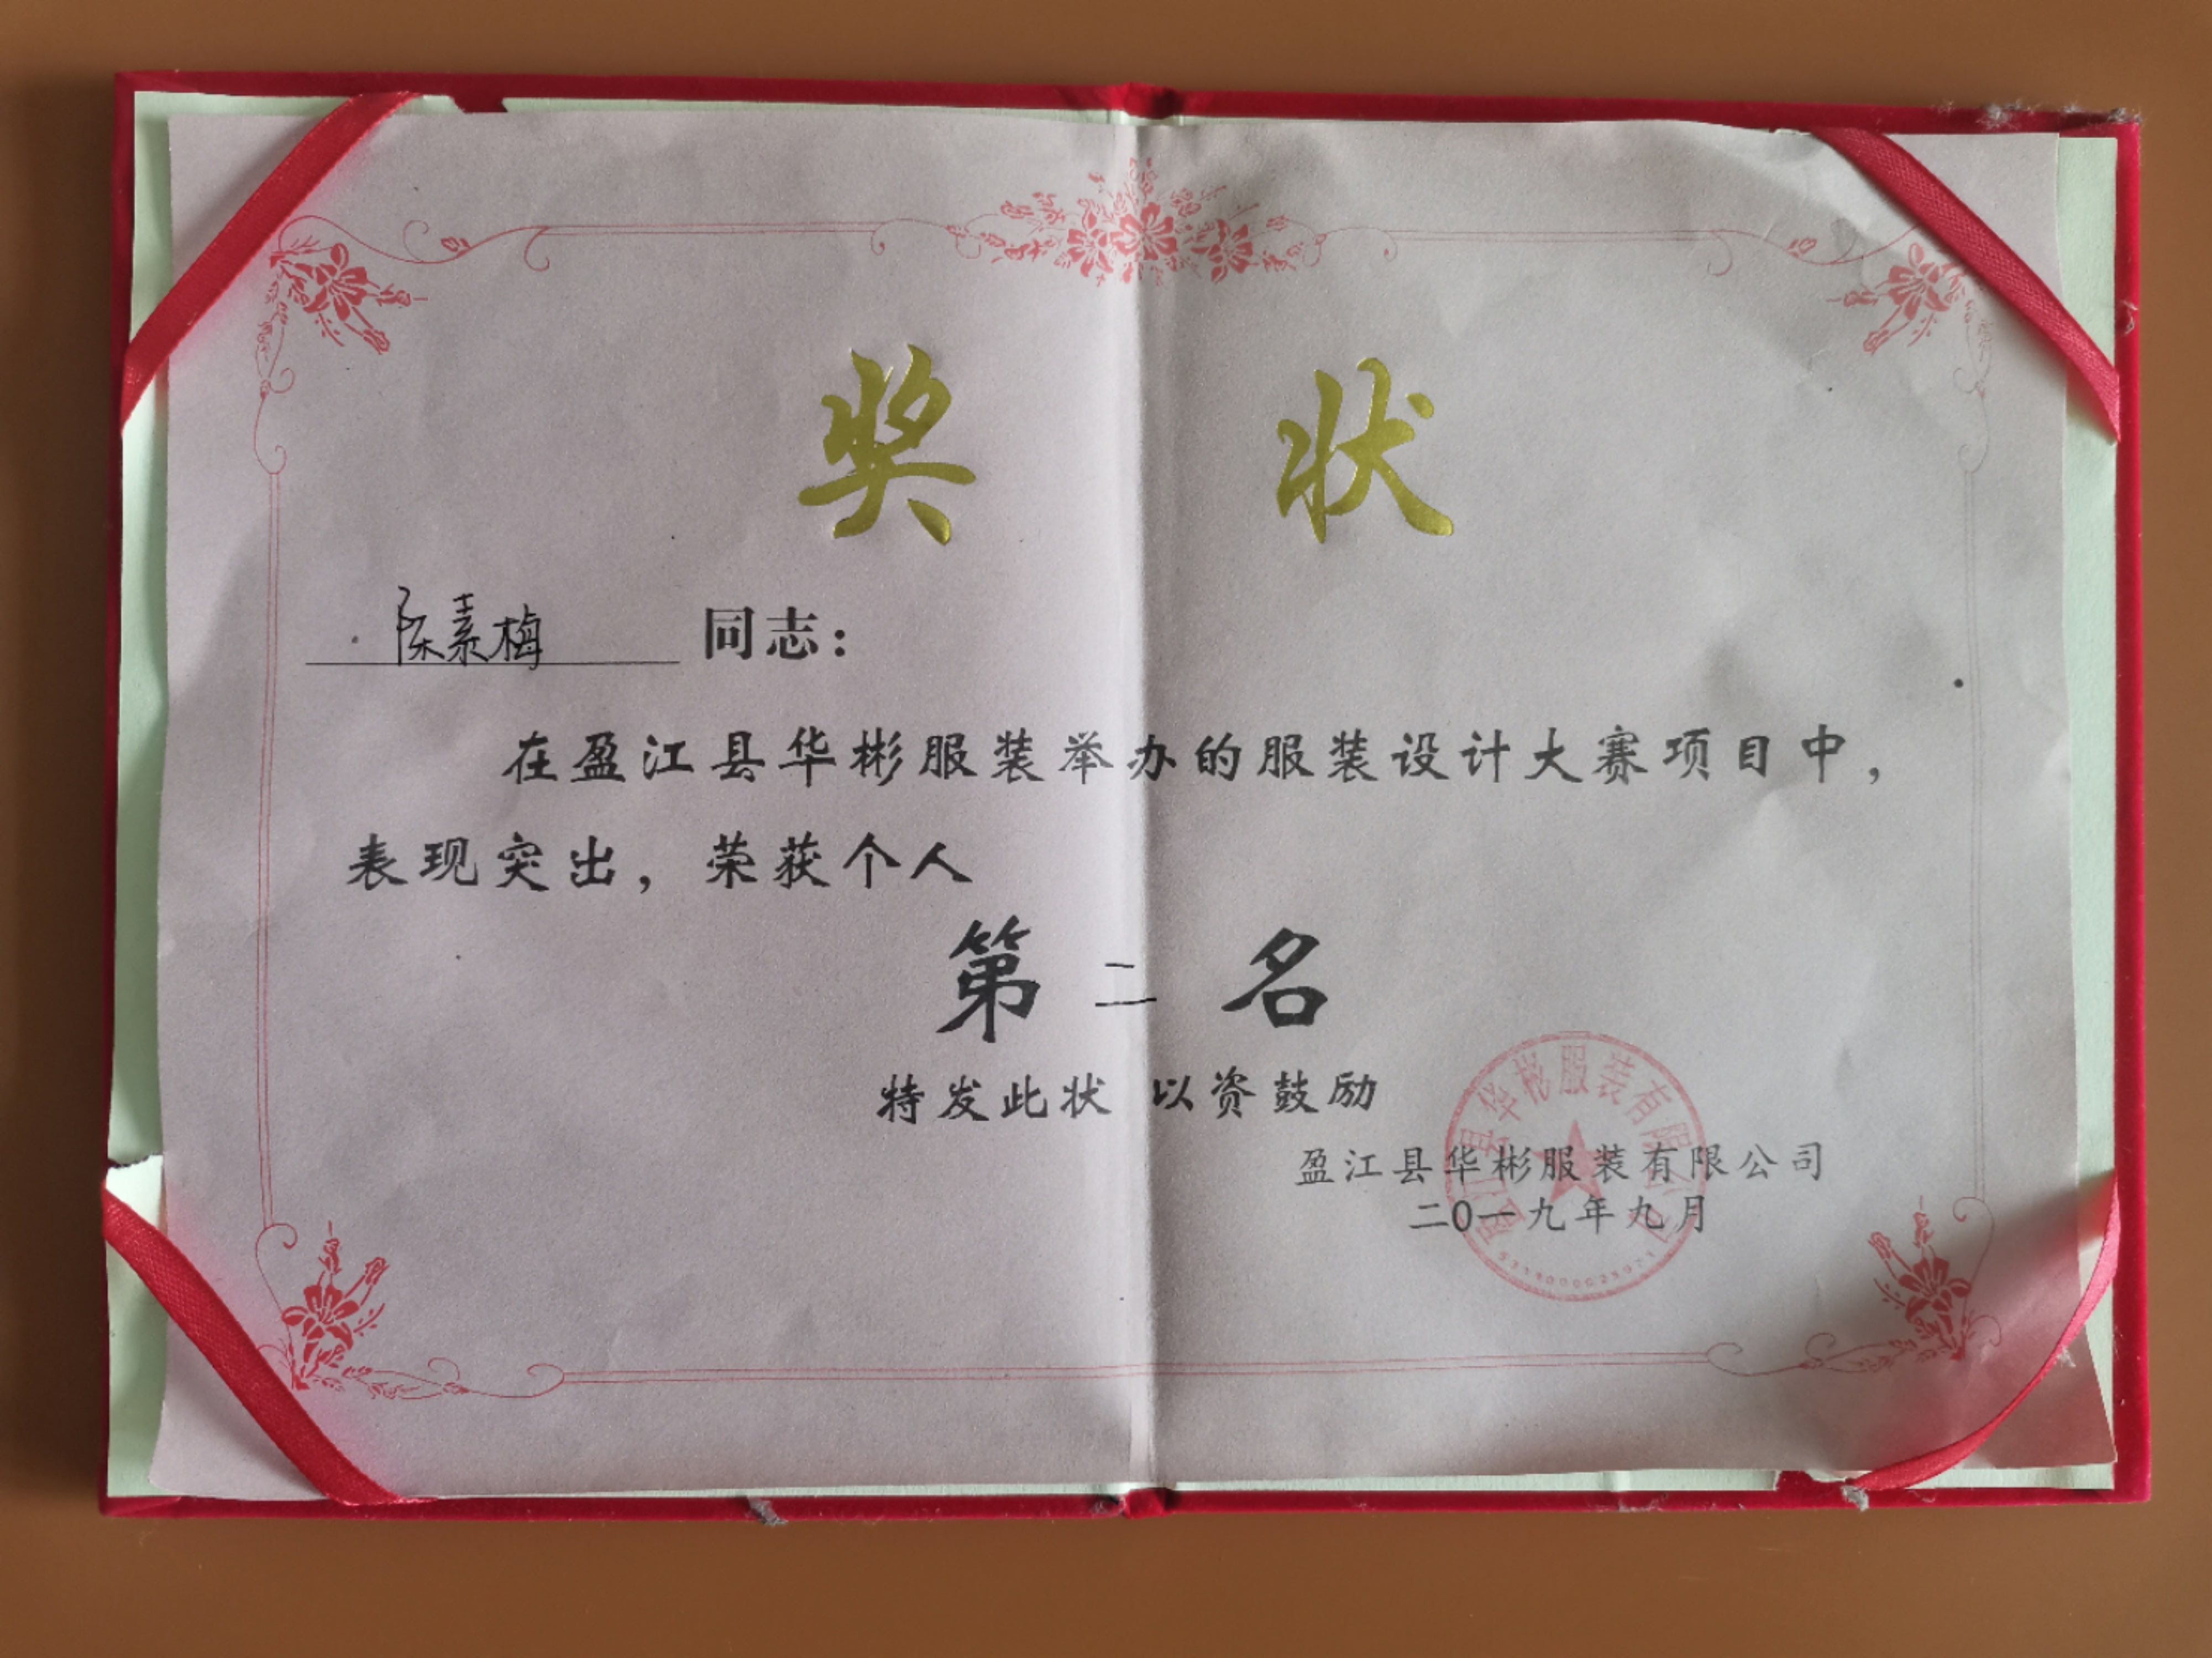 奖 状
陈素梅 同志：
在盈江县华彬服装举办的服装设计大赛项目中，
表现突出，荣获个人
第二名
特发此状 以资鼓励
盈江县华彬服装有限公司
二0一九年九月
盈江县华彬服装有限公司